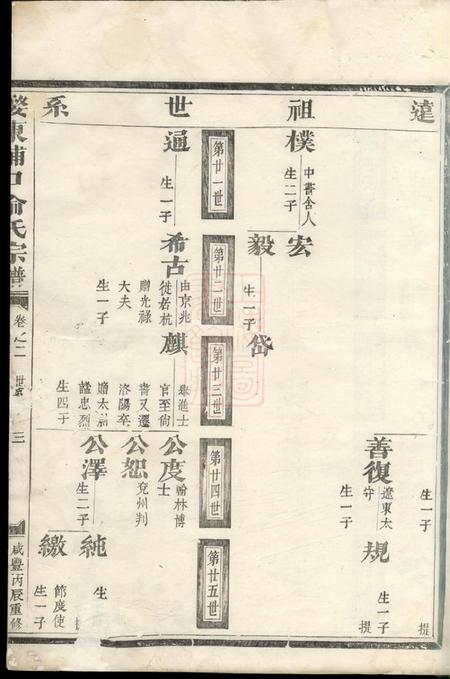 遠祖世系
生一子
善復
遼東太守
生一子
規
生一子
提
樸
中書舍人
生二子
宏
毅
生一子
岱
第廿一世
第廿二世
第廿三世
第廿四世
第廿五世
通
生一子
希古
由京兆
徙若杭
贈光祿
大夫
生一子
麒
舉進士
官至尚
書又遷
洛陽卒
贈太師
諡忠烈
生四子
公度
翰林博士
公恕
兗州判
公澤
生二子
純
生
提
繳
節度使
生一子
婺東浦口俞氏宗譜
卷之二
世系
三
咸豐丙辰重修